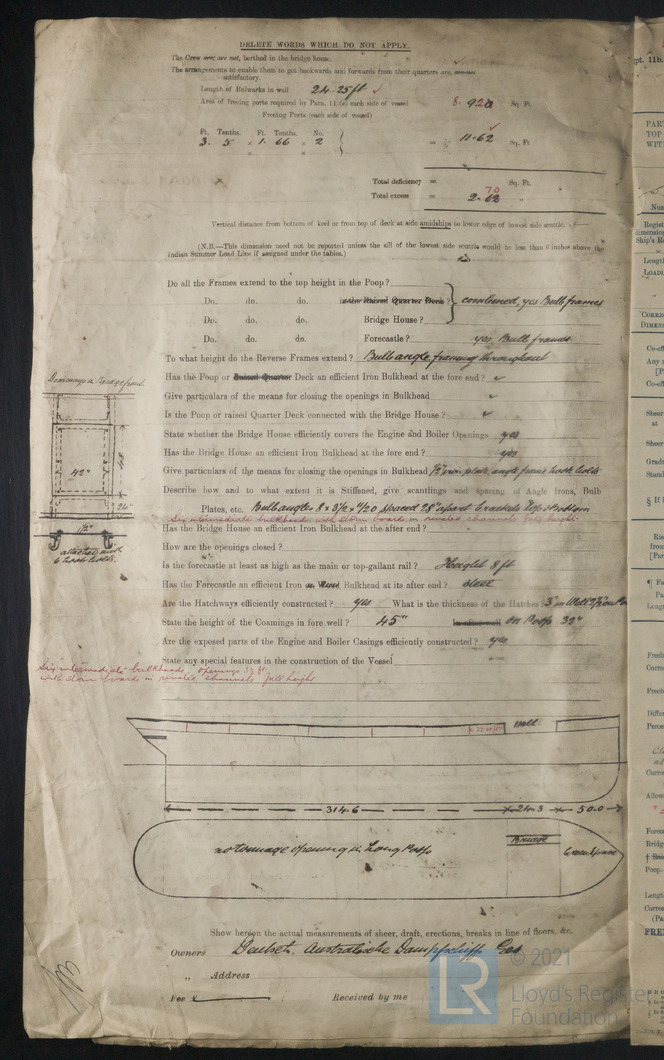 DELETE WORDS WHICH DO NOT APPLY.
The Crew are, are not, berthed in the bridge house.
The arrangements to enable them to get backwards and forwards from their quarters are, are not
satisfactory.
Length of Bulwarks in well 24.25ft ✓
Area of freeing ports required by Para. 11 (e) each side of vessel 8.920 Sq. Ft
Freeing Ports (each side of vessel)
Ft. Tenths. Ft. Tenths. No.
3. 5 x 1. 66 x 2 = 11.62 Sq. Ft.
x x
Total deficiency = Sq. Ft.
70
Total excess = 2.62
Vertical distance from bottom of keel or from top of deck at side amidships to lower edge of lowest side scuttle.
(N.B.—This dimension need not be reported unless the sill of the lowest side scuttle would be less than 6 inches above the
Indian Summer Load Line if assigned under the tables.)
Do all the Frames extend to the top height in the Poop?
Do. do. do. in the Raised Quarter Deck? combined, yes Bulb frames
Do. do. do. Bridge House?
Do. do. do. Forecastle? yes, Bulb frames
To what height do the Reverse Frames extend? Bulb angle framing throughout
Has the Poop or Raised Quarter Deck an efficient Iron Bulkhead at the fore end? ✓
Give particulars of the means for closing the openings in Bulkhead ✓
Is the Poop or raised Quarter Deck connected with the Bridge House? ✓
State whether the Bridge House efficiently covers the Engine and Boiler Openings yes
Has the Bridge House an efficient Iron Bulkhead at the fore end? yes
Give particulars of the means for closing the openings in Bulkhead 1/2" iron plate angle frame hook bolts
Describe how and to what extent it is Stiffened, give scantlings and spacing of Angle Irons, Bulb
Plates, etc. Bulb angles 8 x 3 1/2 x 9/20 spaced 28" apart brackets top & Bottom
Six intermediate bulkheads with storm boards in rivetted channels full height
Has the Bridge House an efficient Iron Bulkhead at the after end?
How are the openings closed?
Is the forecastle at least as high as the main or top-gallant rail? Height 8 ft
Has the Forecastle an efficient Iron or Wood Bulkhead at its after end? steel
Are the Hatchways efficiently constructed? yes What is the thickness of the Hatches 3" in Well
State the height of the Coamings in fore well? 45" on Poop 32"
Are the exposed parts of the Engine and Boiler Casings efficiently constructed? yes
State any special features in the construction of the Vessel
Six intermediate bulkheads, openings
with storm boards in rivetted channels full height
Doorways in bridge front
42"
24"
1 1/2"
attached with
6 hook bolts.
Well
314.6 24.3 50.0
no tonnage opening in Long Poop
Show hereon the actual measurements of sheer, draft, erections, breaks in line of floors, &c.
Owners Deutsch. Australische Dampfschiffs Ges
„ Address
Fee £ : Received by me
LR
© 2021
Lloyd's Register
Foundation